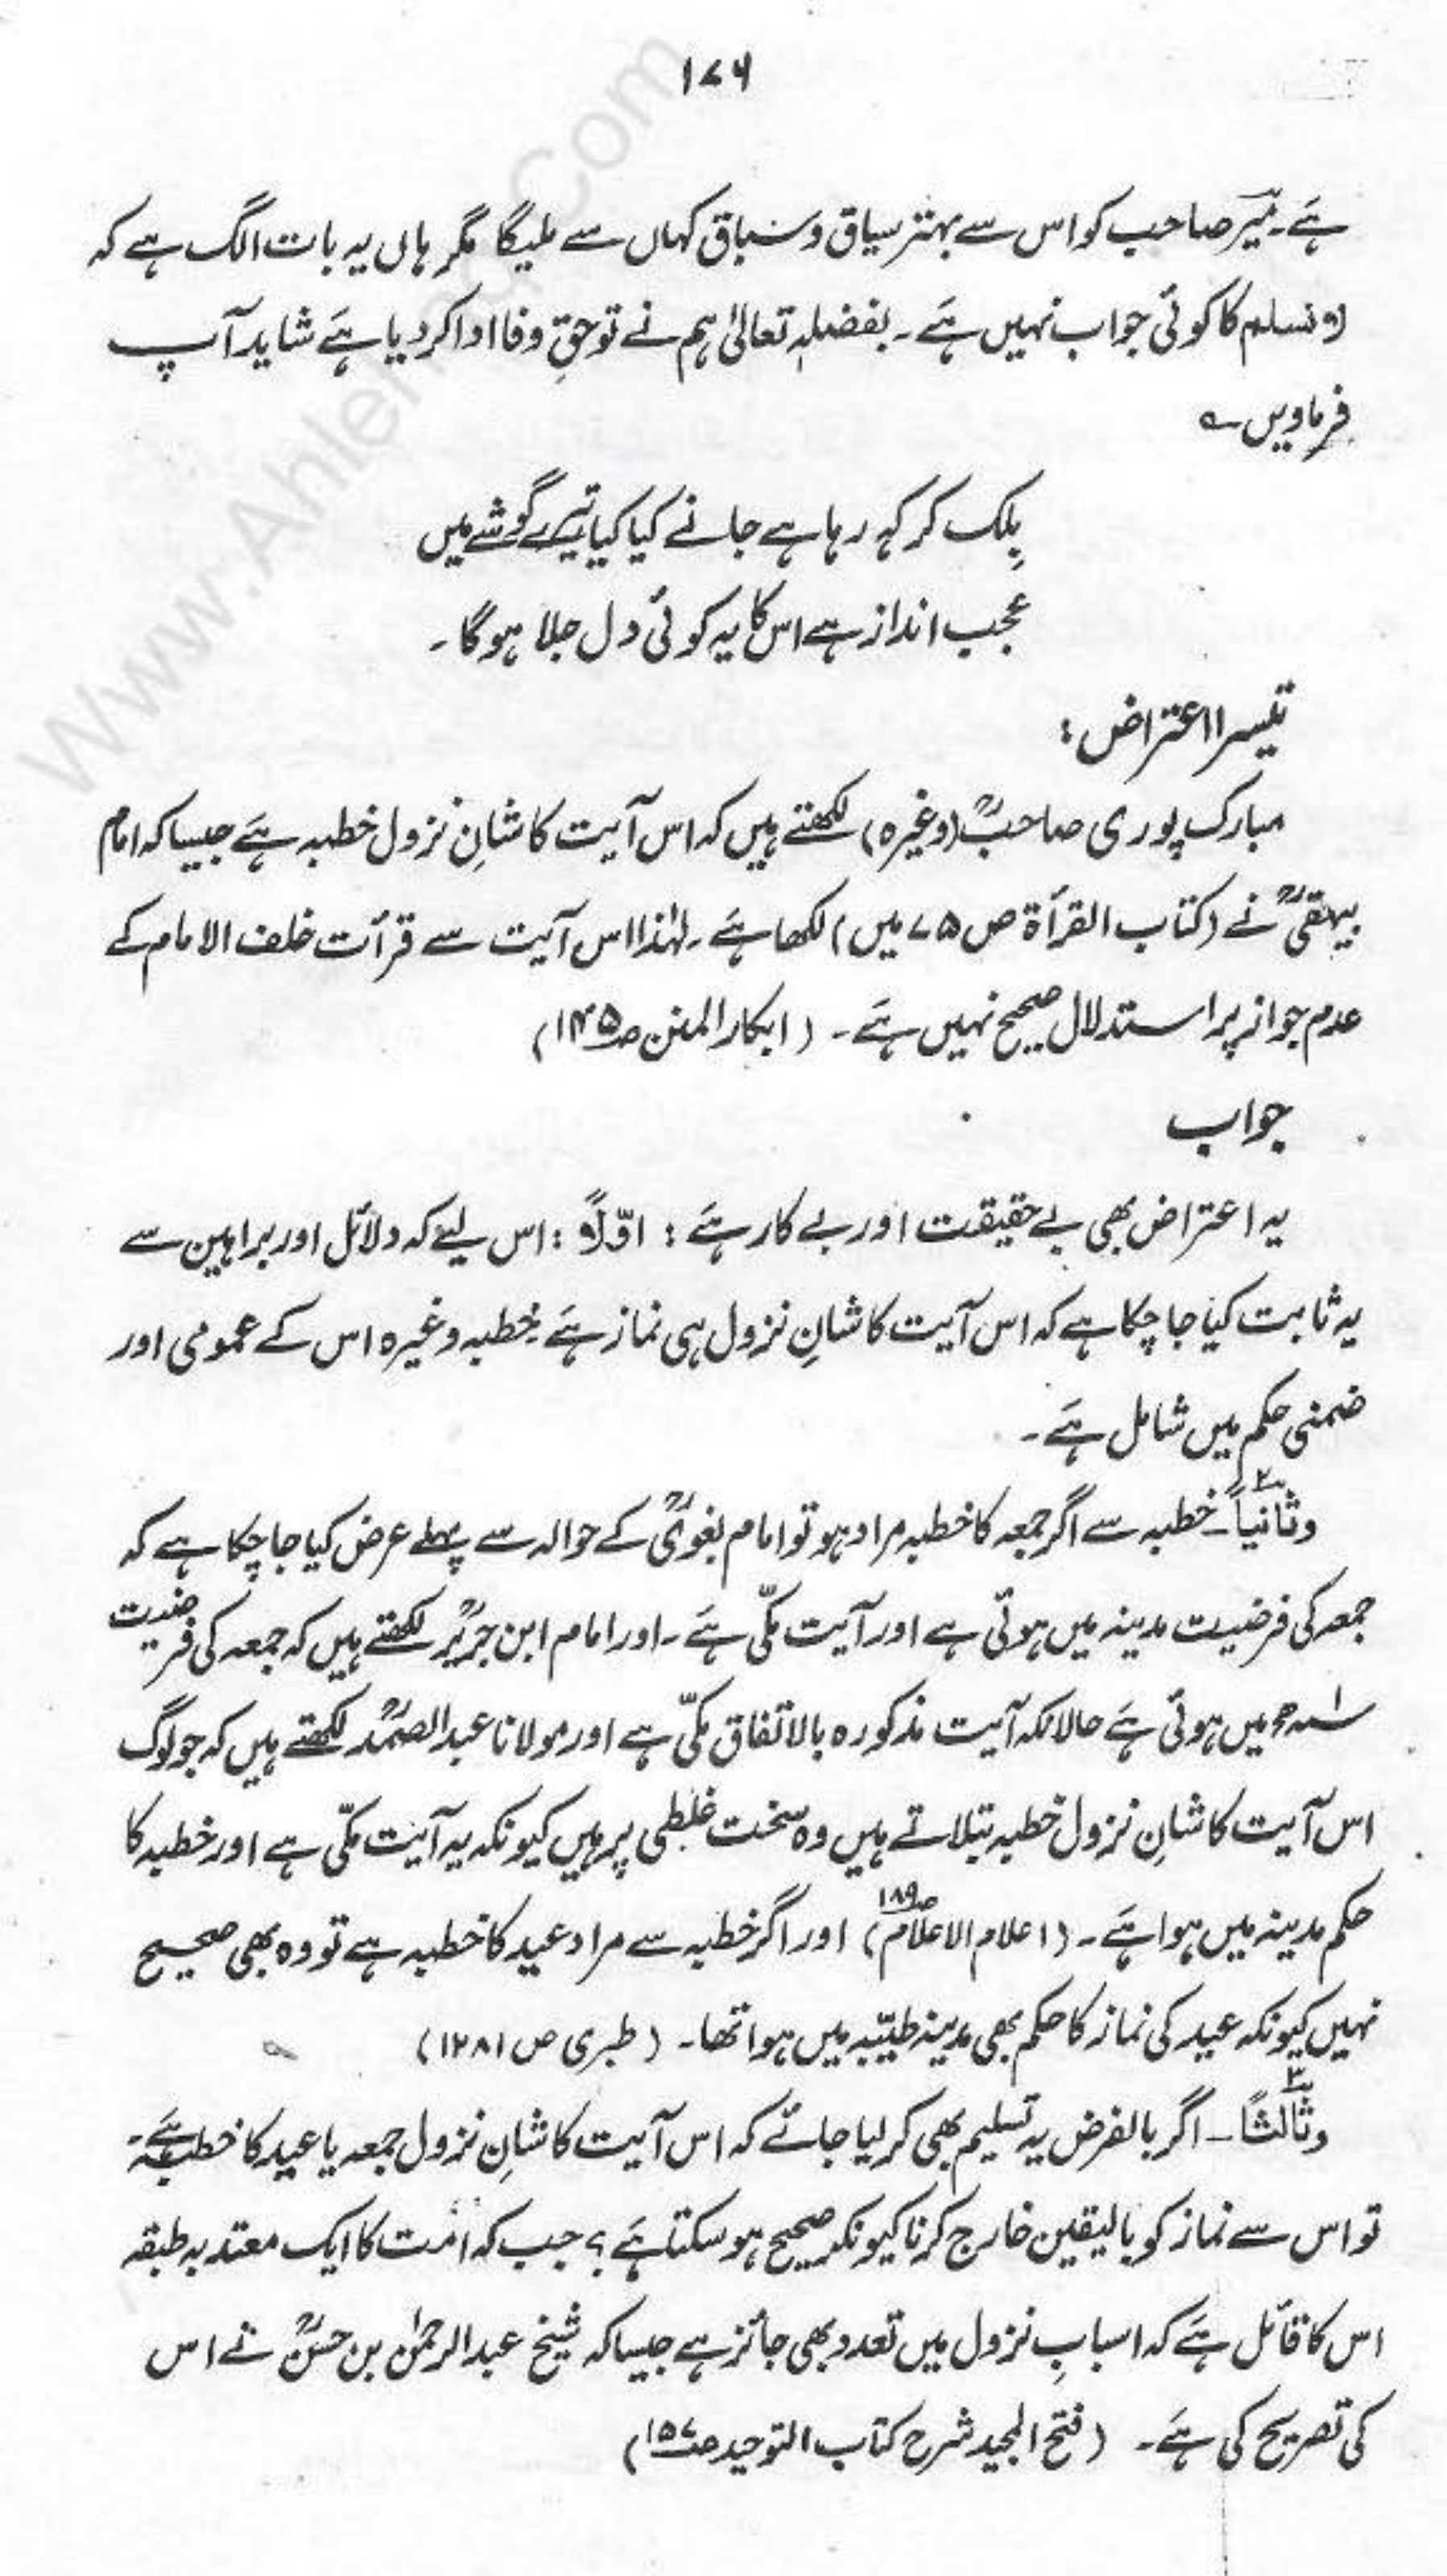 ۱۷۶
ہے۔ میرؔ صاحب کو اس سے بہتر سیاق و سباق کہاں سے ملیگا مگر ہاں یہ بات الگ ہے کہ
لا نسلم کا کوئی جواب نہیں ہے۔ بفضلہٖ تعالیٰ ہم نے تو حقِ وفا ادا کر دیا ہے شاید آپ
فرماویں ؎
بِلک کر کہہ رہا ہے جانے کیا کیا تیرے گوشے میں
عجب انداز ہے اس کا یہ کوئی دل جلا ہوگا۔
تیسرا اعتراض:
مبارک پوری صاحبؒ (وغیرہ) لکھتے ہیں کہ اس آیت کا شانِ نزول خطبہ ہے جیسا کہ امام
بیہقیؒ نے (کتاب القرأۃ ص ۷۵ میں) لکھا ہے۔ لہٰذا اس آیت سے قرأت خلف الامام کے
عدم جواز پر استدلال صحیح نہیں ہے۔ (ابکار المنن ص۱۴۵)
جواب
یہ اعتراض بھی بے حقیقت اور بے کار ہے: اوّلاً: اس لیے کہ دلائل اور براہین سے
یہ ثابت کیا جا چکا ہے کہ اس آیت کا شانِ نزول ہی نماز ہے۔ خطبہ وغیرہ اس کے عمومی اور
ضمنی حکم میں شامل ہے۔
وثانیاً۲۔ خطبہ سے اگر جمعہ کا خطبہ مراد ہو تو امام بغویؒ کے حوالہ سے پہلے عرض کیا جا چکا ہے کہ
جمعہ کی فرضیت مدینہ میں ہوئی ہے اور آیت مکّی ہے۔ اور امام ابن جریرؒ لکھتے ہیں کہ جمعہ کی فرضیت
۱ھ میں ہوئی ہے حالانکہ آیت مذکورہ بالاتفاق مکّی ہے اور مولانا عبد الصمدؒ لکھتے ہیں کہ جو لوگ
اس آیت کا شانِ نزول خطبہ بتلاتے ہیں وہ سخت غلطی پر ہیں کیونکہ یہ آیت مکّی ہے اور خطبہ کا
حکم مدینہ میں ہوا ہے۔ (اعلام الاعلام ص۱۸۹) اور اگر خطبہ سے مراد عید کا خطبہ ہے تو وہ بھی صحیح
نہیں کیونکہ عید کی نماز کا حکم بھی مدینہ طیّبہ میں ہوا تھا۔ (طبری ص ۱۲۸۱)
وثالثاً۳۔ اگر بالفرض یہ تسلیم بھی کر لیا جائے کہ اس آیت کا شانِ نزول جمعہ یا عید کا خطبہ ہے۔
تو اس سے نماز کو بالیقین خارج کرنا کیونکر صحیح ہو سکتا ہے؟ جب کہ امت کا ایک معتدبہ طبقہ
اس کا قائل ہے کہ اسبابِ نزول میں تعدد بھی جائز ہے جیسا کہ شیخ عبد الرحمٰن بن حسنؒ نے اس
کی تصریح کی ہے۔ (فتح المجید شرح کتاب التوحید ص۱۵۷)